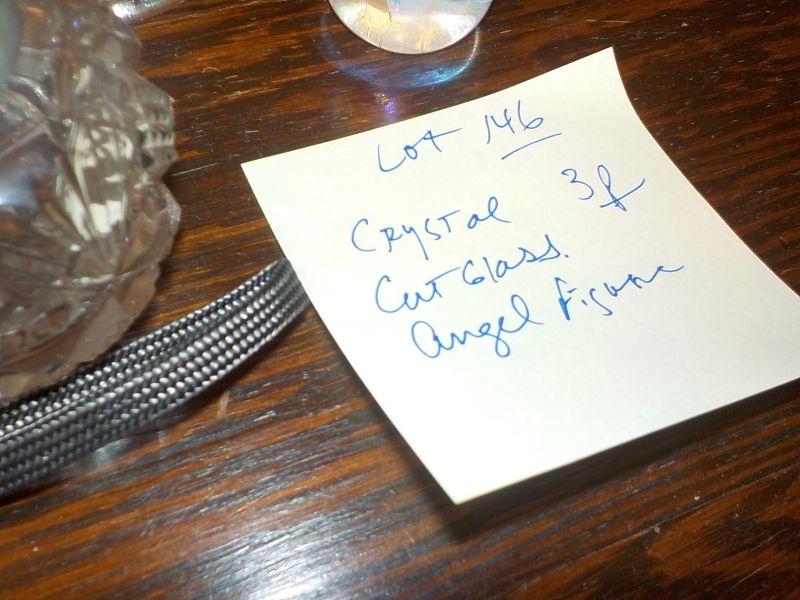 Lot 146
Crystal 3f
Cut Glass.
Angel Figure